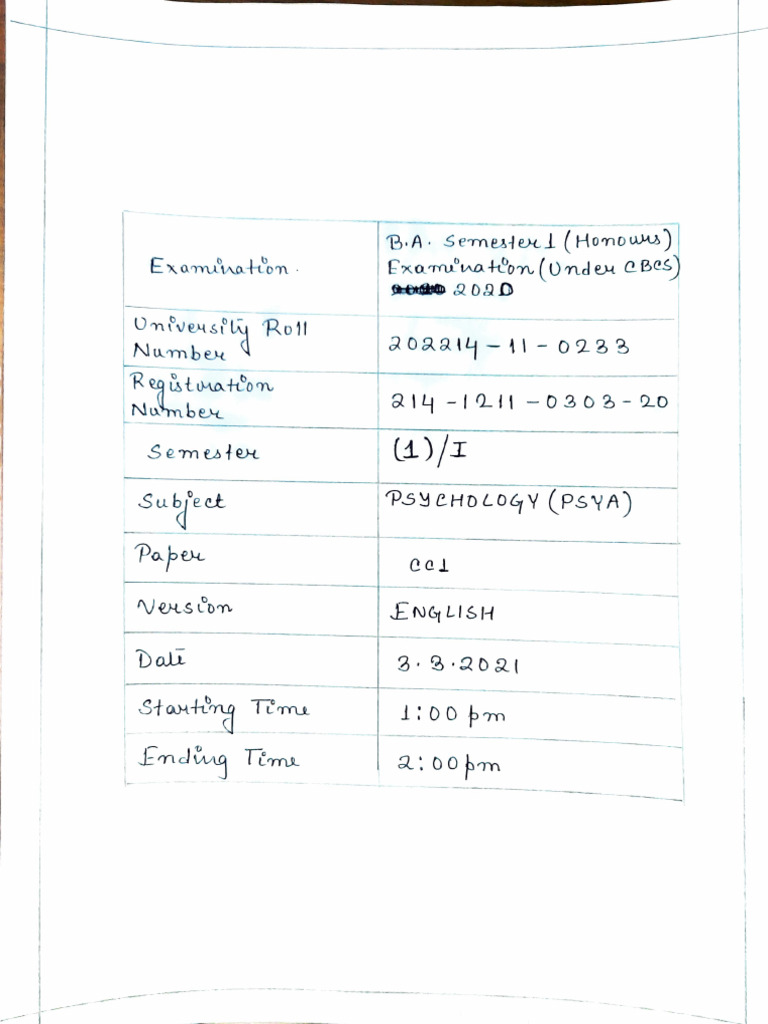 Examination.
B.A. Semester 1 (Honours)
Examination (Under CBCS)
2020
University Roll
Number
202214-11-0233
Registration
Number
214-1211-0303-20
Semester
(1)/I
Subject
PSYCHOLOGY (PSYA)
Paper
CC1
Version
ENGLISH
Date
3.3.2021
Starting Time
1:00 pm
Ending Time
2:00 pm